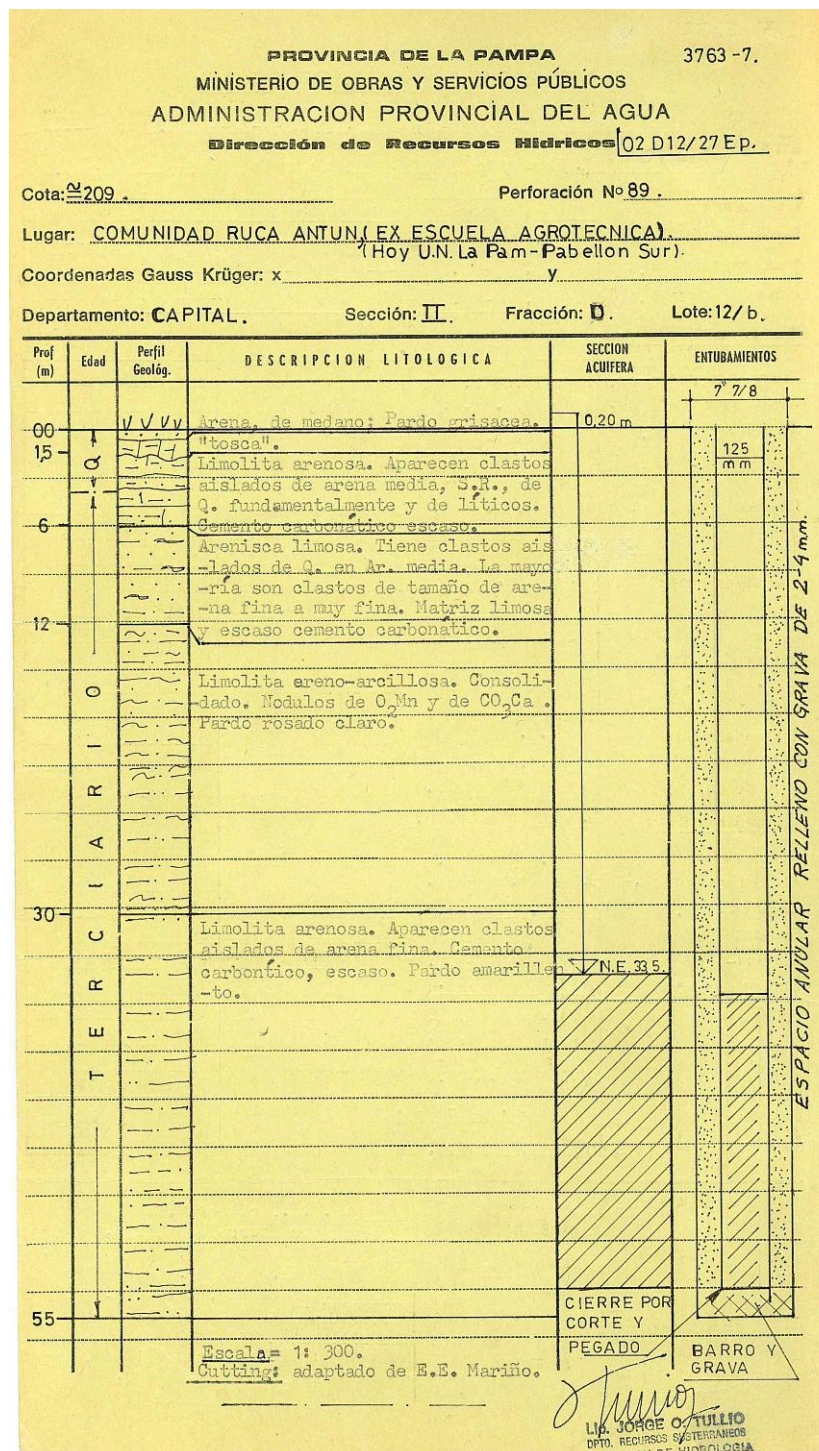 PROVINCIA DE LA PAMPA
3763-7.
MINISTERIO DE OBRAS Y SERVICIOS PÚBLICOS
ADMINISTRACION PROVINCIAL DEL AGUA
Dirección de Recursos Hídricos 02 D12/27 Ep.
Cota: ≅209. Perforación Nº 89.
Lugar: COMUNIDAD RUCA ANTUN, ( EX ESCUELA AGROTECNICA).
(Hoy U.N. La Pam-Pabellon Sur).
Coordenadas Gauss Krüger: x y
Departamento: CAPITAL. Sección: II. Fracción: D. Lote: 12/b.
Prof (m)
Edad
Perfil Geológ.
DESCRIPCION LITOLOGICA
SECCION ACUIFERA
ENTUBAMIENTOS
7" 7/8
00
Arena, de medano: Pardo grisacea.
0,20 m
15
"tosca".
125 mm
Q
Limolita arenosa. Aparecen clastos
aislados de arena media, S.R., de
Q. fundamentalmente y de líticos.
Cemento carbonático escaso.
6
Arenisca limosa. Tiene clastos ais
-lados de Q. en Ar. media. La mayo
-ría son clastos de tamaño de are-
-na fina a muy fina. Matriz limosa
12
y escaso cemento carbonático.
Limolita areno-arcillosa. Consoli-
-dado. Nodulos de O2Mn y de CO3Ca .
Pardo rosado claro.
TERCIARIO
30
Limolita arenosa. Aparecen clastos
aislados de arena fina. Cemento
carbontico, escaso. Pardo amarillen
-to.
N.E. 33,5.
ESPACIO ANULAR RELLENO CON GRAVA DE 2-4mm.
55
CIERRE POR
CORTE Y
PEGADO
BARRO Y
GRAVA
Escala= 1: 300.
Cutting: adaptado de E.E. Mariño.
Lic. JORGE O. TULLIO
DPTO. RECURSOS SUBTERRANEOS
DE HIDROLOGIA